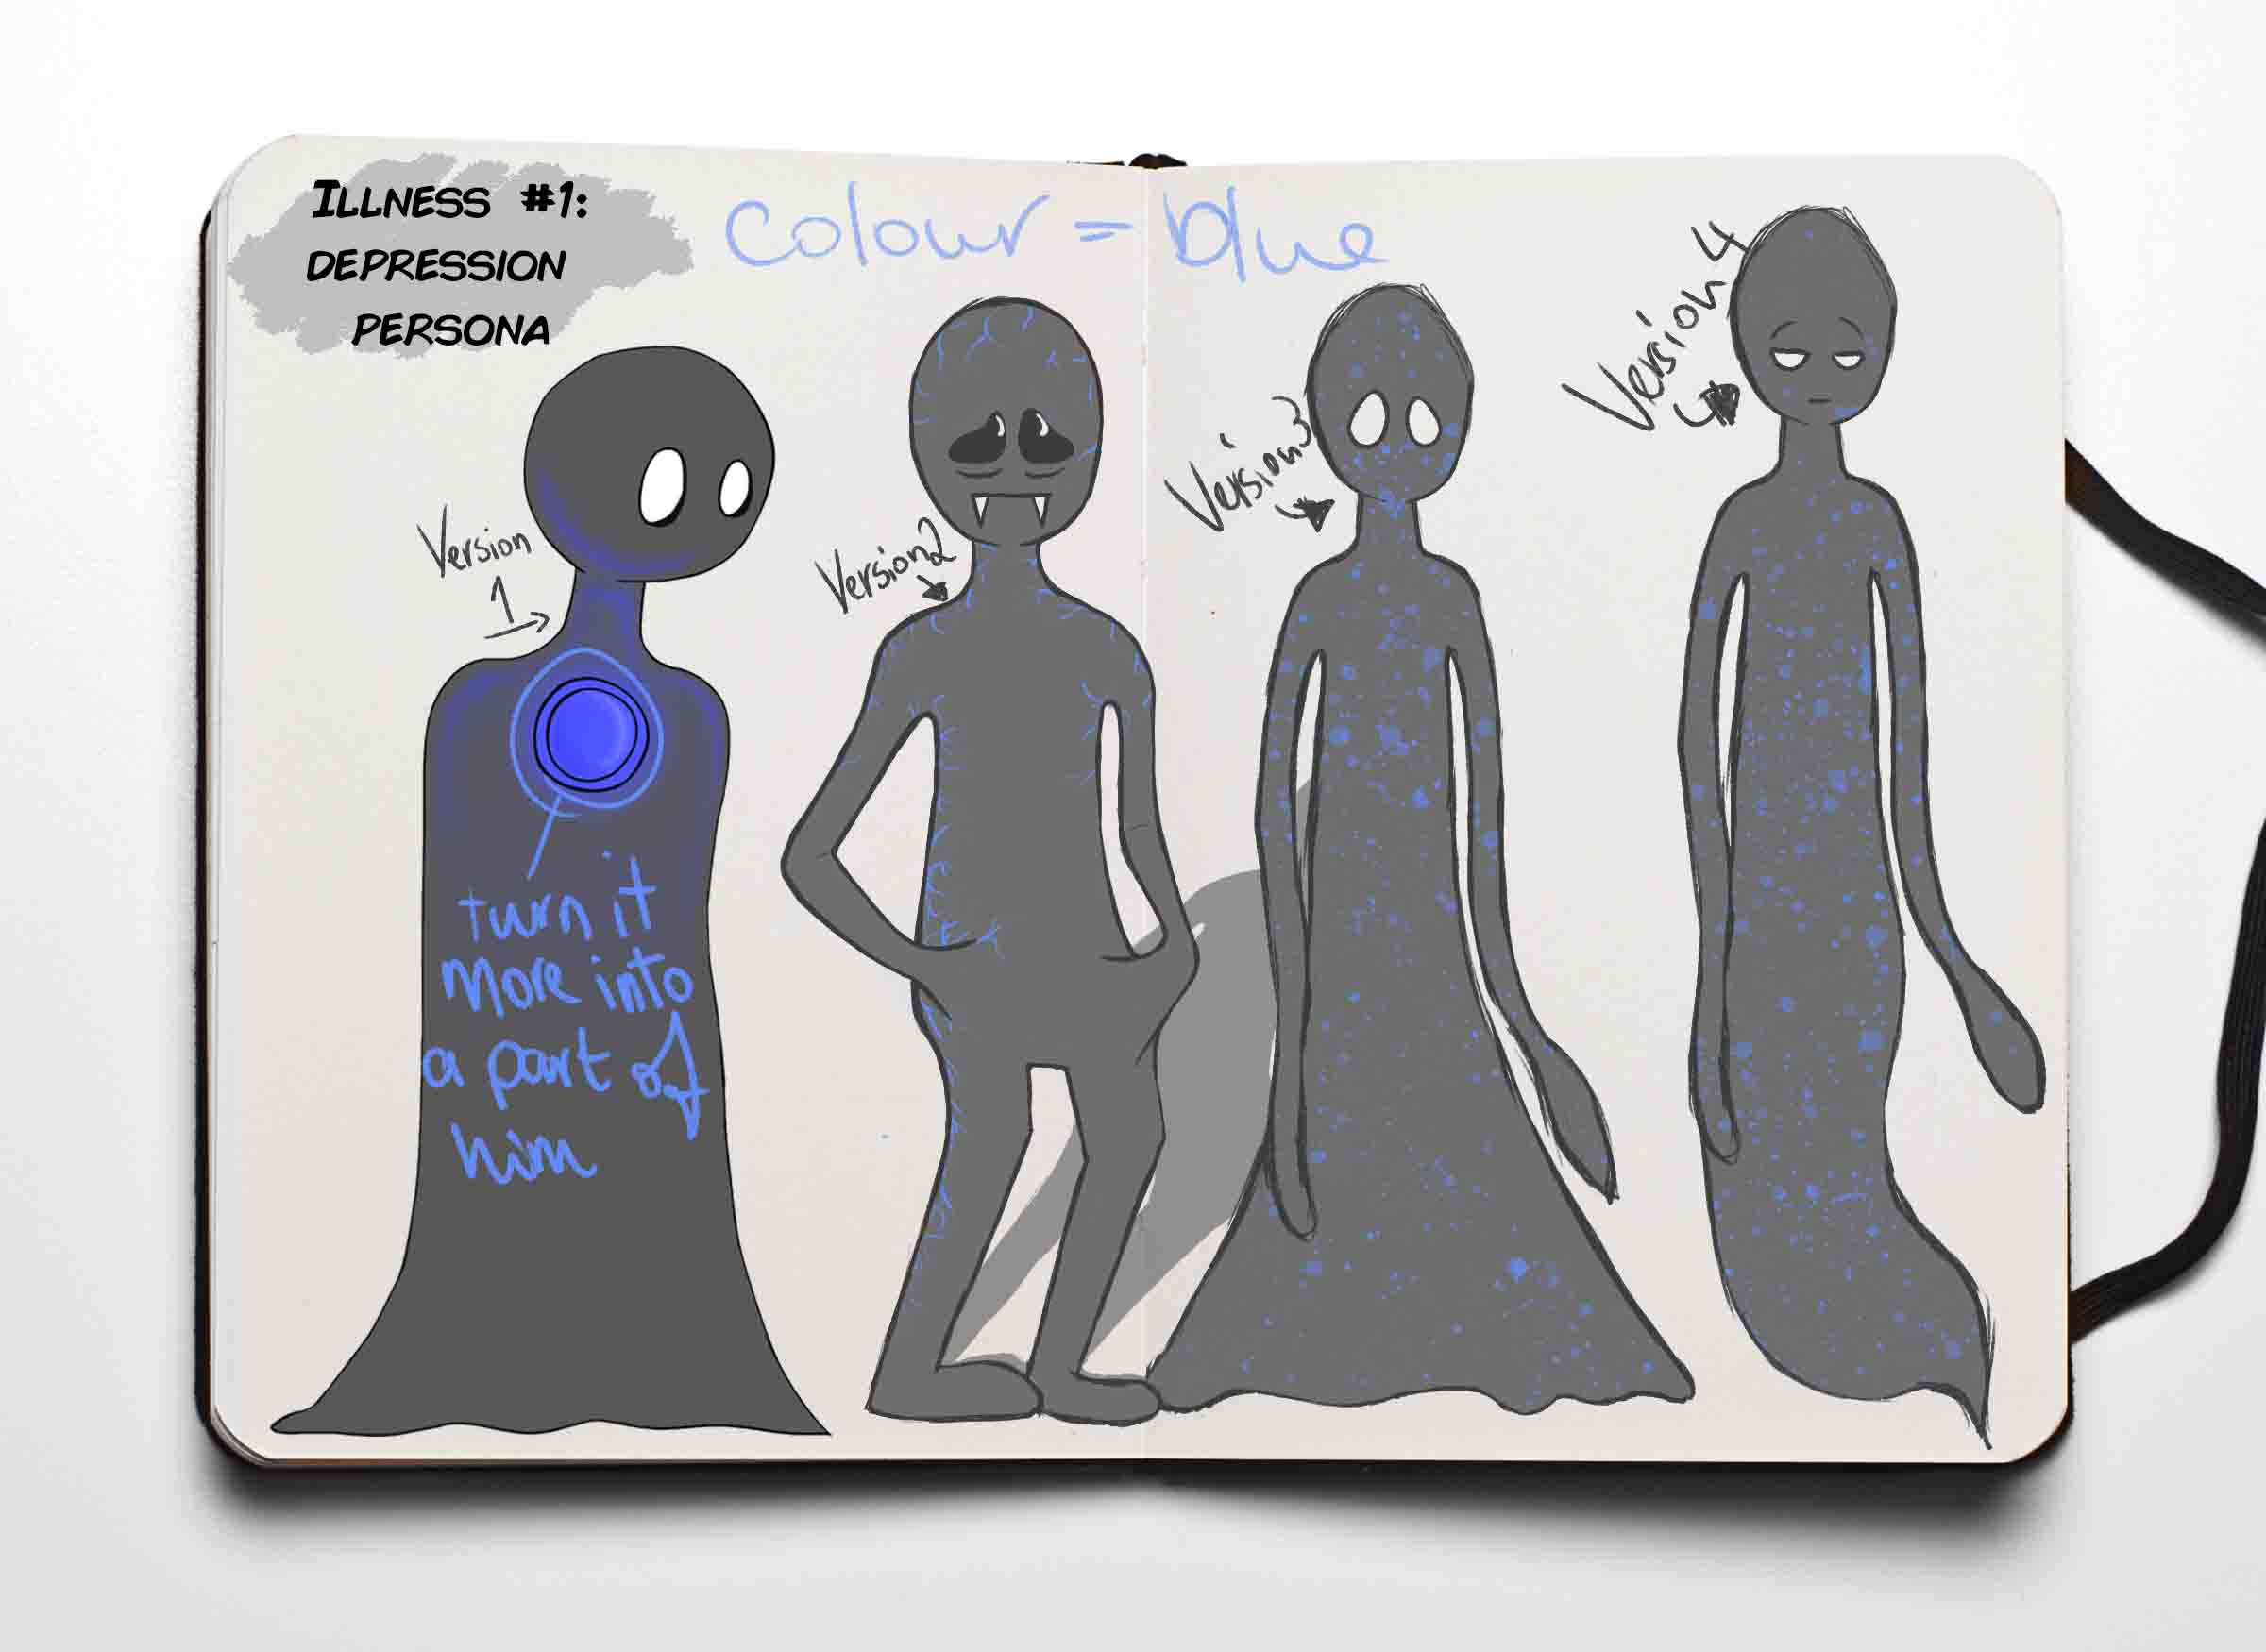 ILLNESS #1:
DEPRESSION
PERSONA
colour = blue
Version
1
turn it
more into
a part of
him
Version 2
Version 3
Version 4